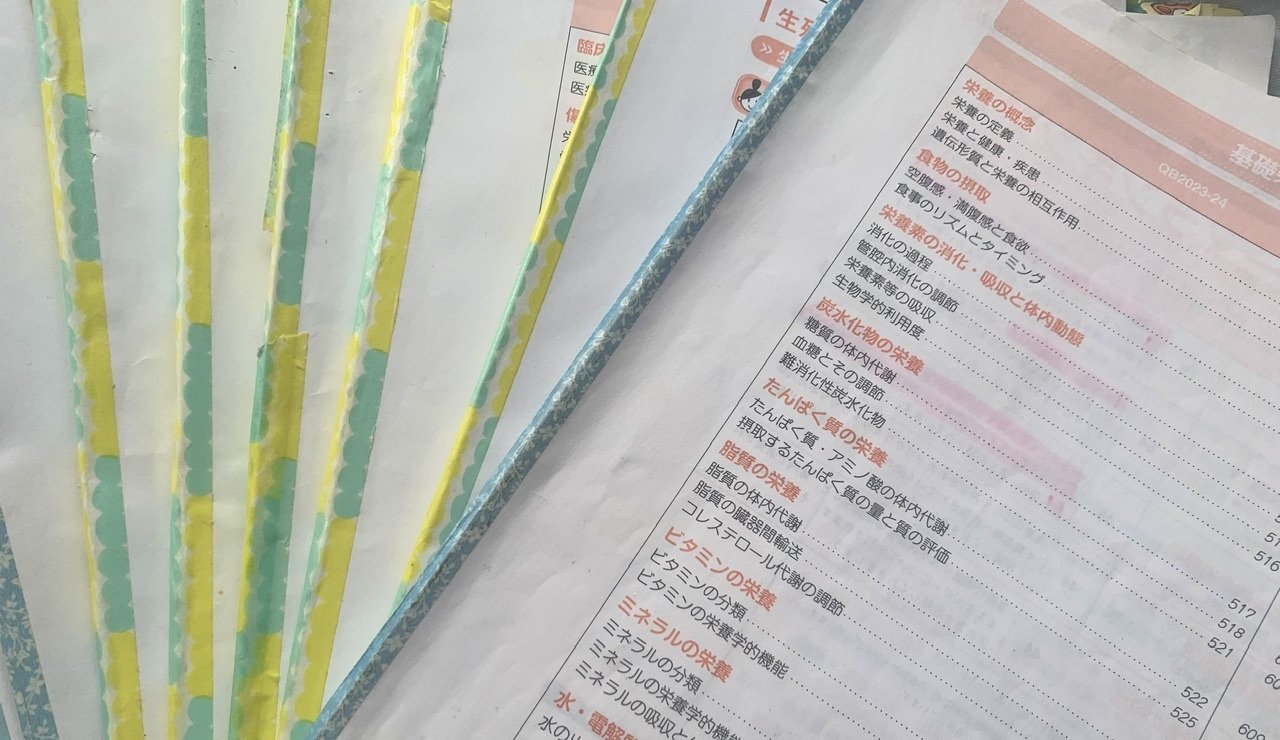 臨床
医療
医
傷
生殖
基礎
QB2023-24
栄養の概念
栄養の定義
栄養と健康・疾患
遺伝形質と栄養の相互作用
食物の摂取
空腹感・満腹感と食欲
食事のリズムとタイミング
栄養素の消化・吸収と体内動態
消化の過程
管腔内消化の調節
栄養素等の吸収
生物学的利用度
炭水化物の栄養
糖質の体内代謝
血糖とその調節
難消化性炭水化物
たんぱく質の栄養
たんぱく質・アミノ酸の体内代謝
摂取するたんぱく質の量と質の評価 516
脂質の栄養
脂質の体内代謝 517
脂質の臓器間輸送 518
コレステロール代謝の調節 521
ビタミンの栄養
ビタミンの分類 522
ビタミンの栄養学的機能 525
ミネラルの栄養
ミネラルの分類
ミネラルの栄養学的機能
ミネラルの吸収と
水・電解
水の